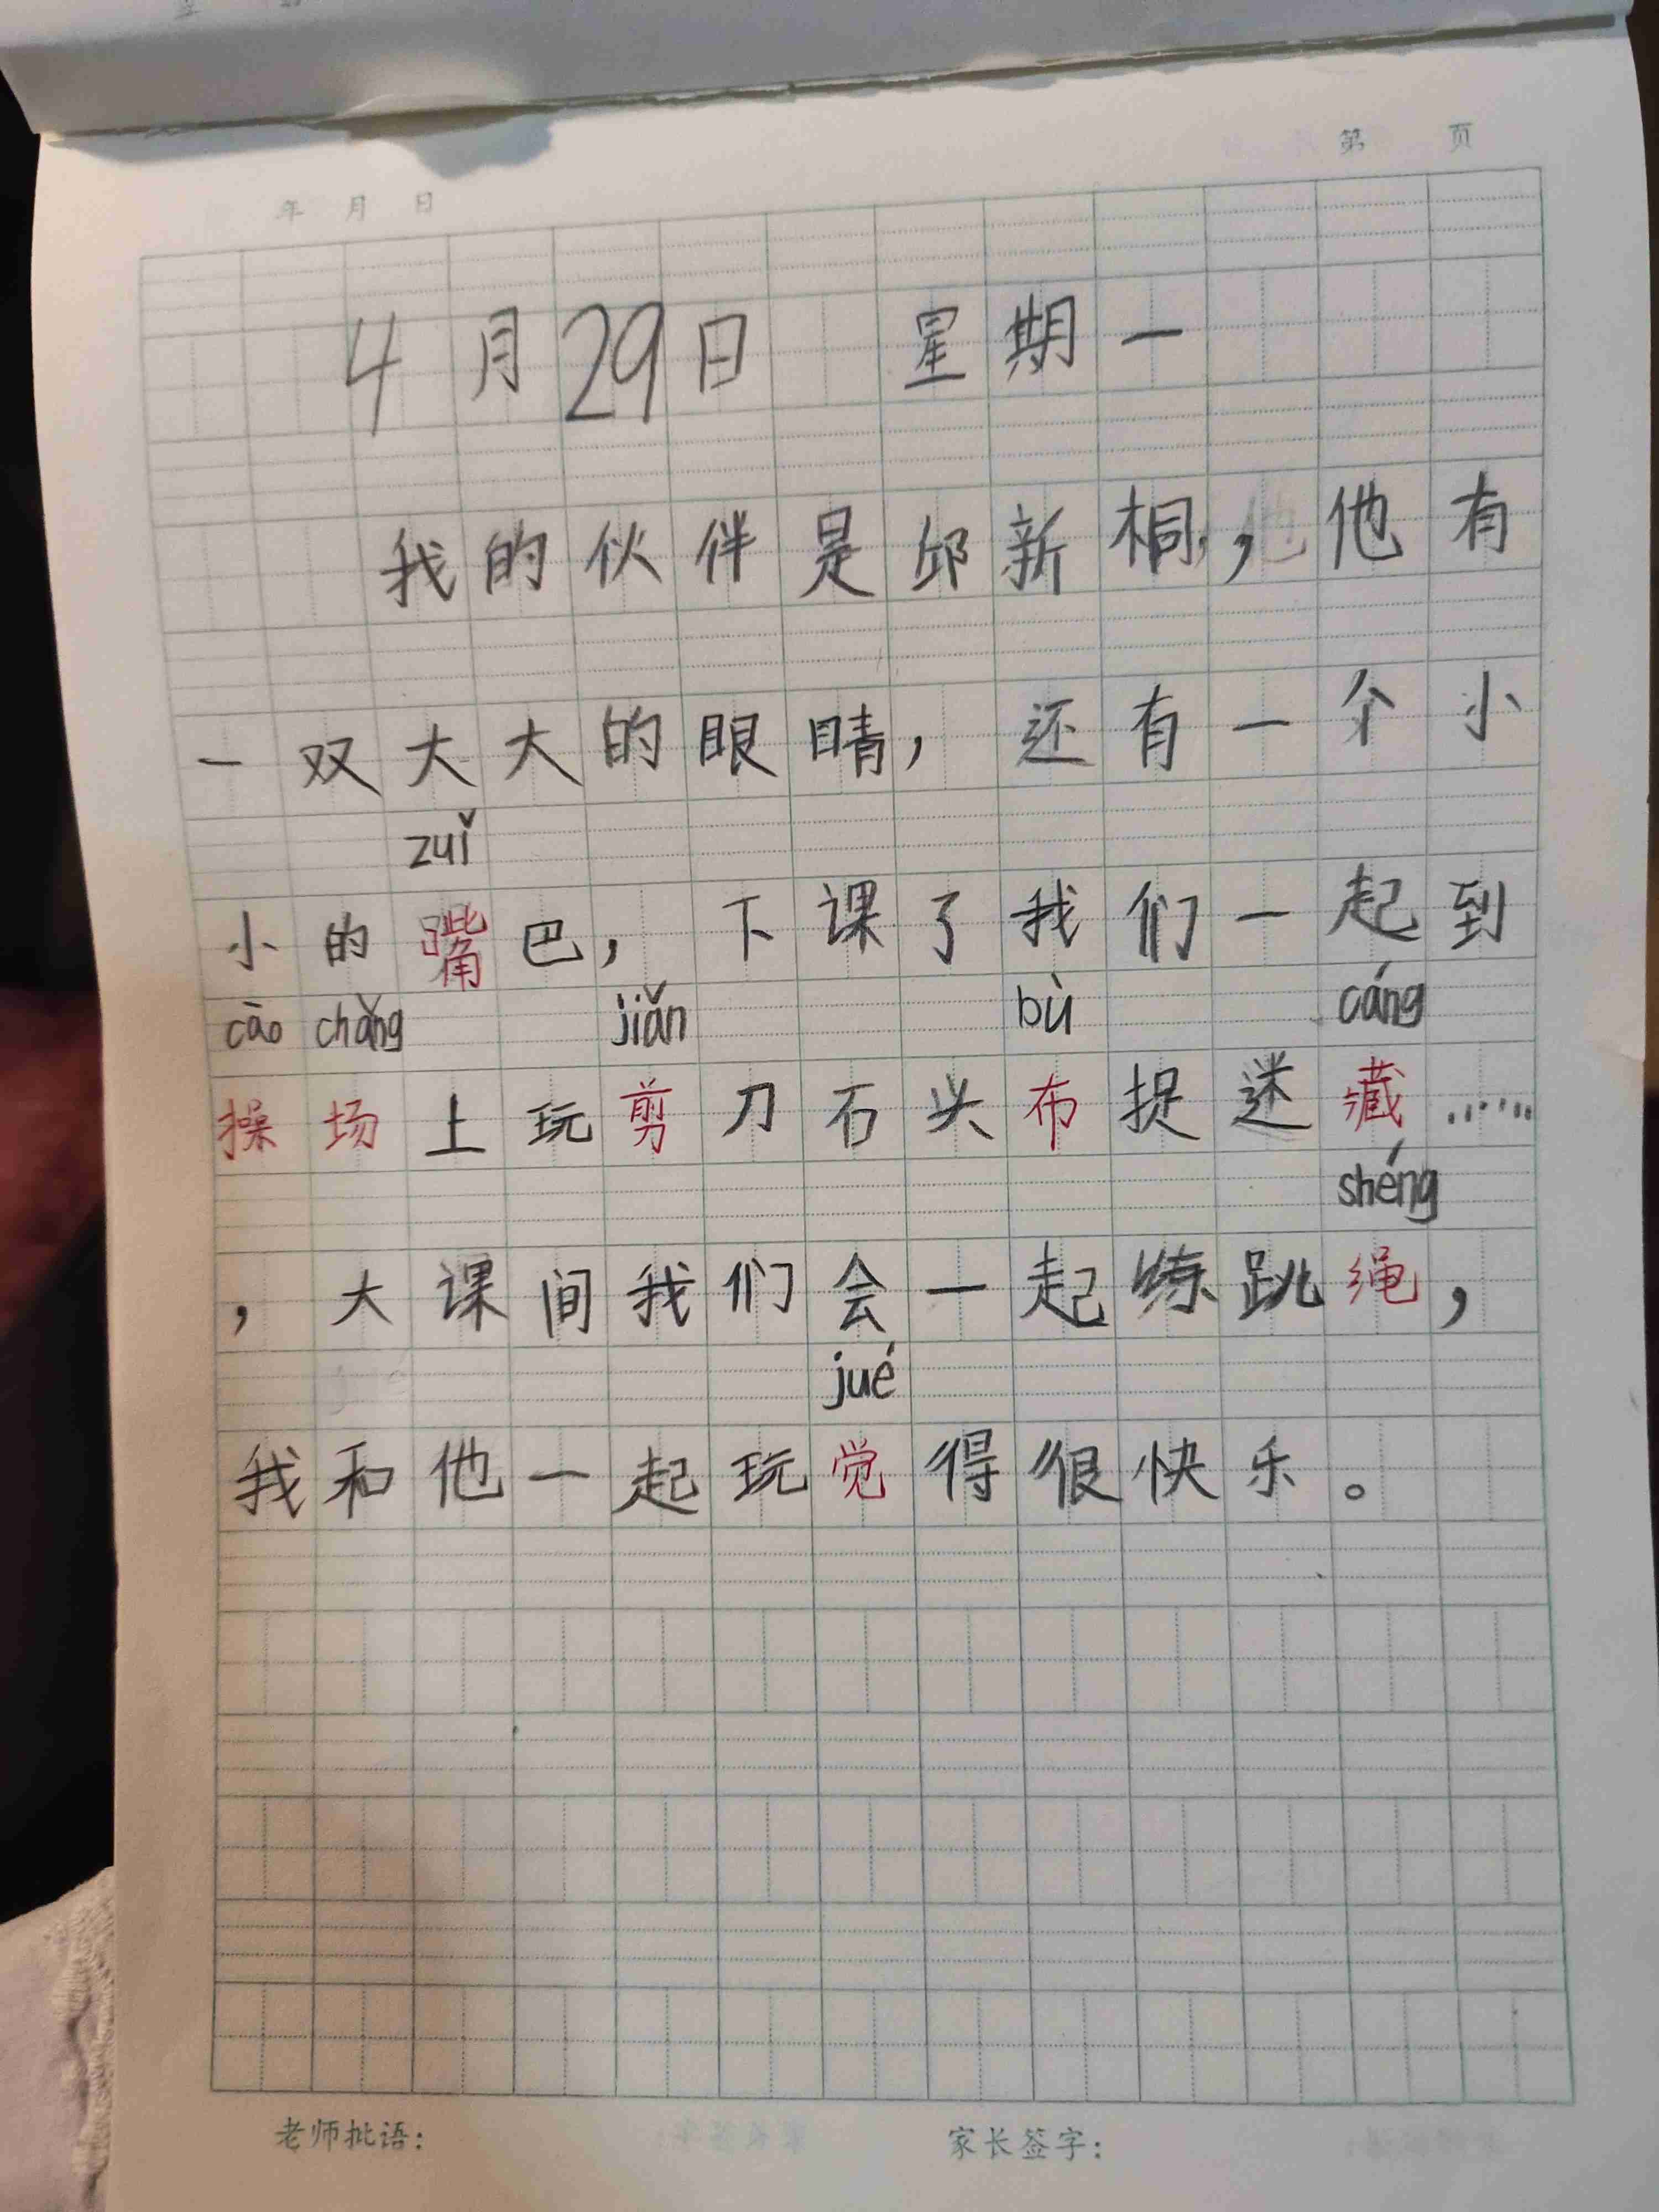 第 页
年 月 日
4月29日 星期一
我的伙伴是邱新桐，他有
一双大大的眼睛，还有一个小
zuǐ
小的嘴巴，下课了我们一起到
cāo chǎng jiǎn bù cáng
操场上玩剪刀石头布捉迷藏……
shéng
，大课间我们会一起练跳绳，
jué
我和他一起玩觉得很快乐。
老师批语： 家长签字：